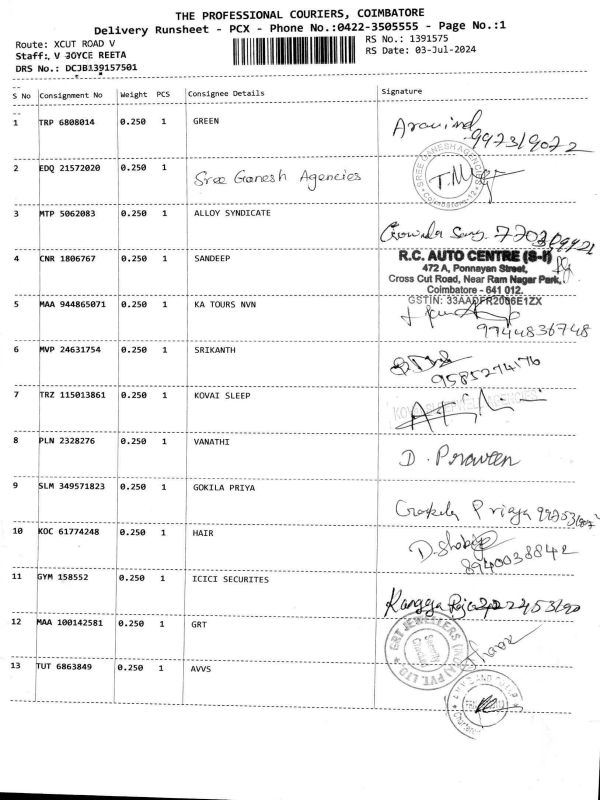 THE PROFESSIONAL COURIERS, COIMBATORE
Delivery Runsheet - PCX - Phone No.:0422-3505555 - Page No.:1
Route: XCUT ROAD V
RS No.: 1391575
Staff:, V JOYCE REETA
RS Date: 03-Jul-2024
DRS No.: DCJB139157501
S No Consignment No Weight PCS Consignee Details Signature
1 TRP 6808014 0.250 1 GREEN Aravind
997319072
2 EDQ 21572020 0.250 1 Sree Ganesh Agencies
SREE GANESH AGENCIES
Coimbatore-12
3 MTP 5062083 0.250 1 ALLOY SYNDICATE
4 CNR 1806767 0.250 1 SANDEEP
R.C. AUTO CENTRE (S-I)
472 A, Ponnayan Street,
Cross Cut Road, Near Ram Nagar Park,
Coimbatore - 641 012.
GSTIN: 33AADFR2006E1ZX
5 MAA 944865071 0.250 1 KA TOURS NVN
9744836748
6 MVP 24631754 0.250 1 SRIKANTH
9585274176
7 TRZ 115013861 0.250 1 KOVAI SLEEP
8 PLN 2328276 0.250 1 VANATHI D. Praveen
9 SLM 349571823 0.250 1 GOKILA PRIYA Gokila Priya
10 KOC 61774248 0.250 1 HAIR
8940038842
11 GYM 158552 0.250 1 ICICI SECURITES
12 MAA 100142581 0.250 1 GRT
GRT JEWELLERS (INDIA) PVT. LTD
13 TUT 6863849 0.250 1 AVVS